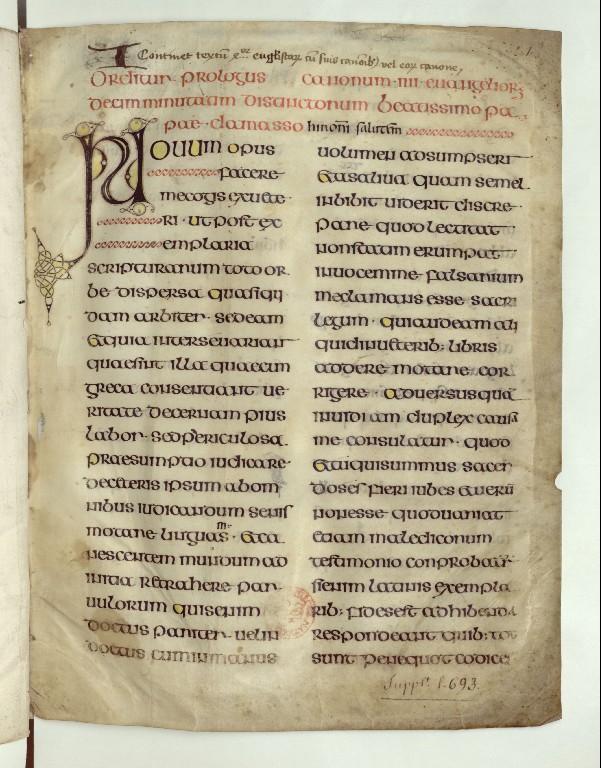 Continet textū
Orditur prologus canonum iiii euangelior;
decim minutatim distinctonum beatissimo pa
pae damasso hironī salutem
Nouum opus
facere
mecogis exuete
ri · ut post ex
emplaria
scripturanum toto or
be dispersa quasi qui
dam arbiter · sedeam
Et quia inter se uariant
quae sint illa quae cum
greca consentiant ue
ritate decernam pius
labor · sed periculosa
praesumptio iudicare
de ceteris ipsum ab om
nibus iudicandum senis
motane linguas · et ca
nescentem mundum ad
initia retrahere par
uulorum quis enim
doctus pariter · uel in
doctus cum in manus
uolumen adsumpseri
Et a saliua quam semel
inbibit uiderit discre
pane quod lectitat
non statim erumpat
in uocem me falsarium
me clamans esse sacri
legum · qui audeam ali
quid in ueterib; libris
addere motane · cor
rigere · aduersus quā
inuidiam duplex causa
me consulatur · quod
Et tu qui summus sacer
doses fieri iubes et uerū
non esse quod uariat
etiam maledicorum
testimonio conprobatur
si enim latinis exempla
rib; fides est adhibenda
respondeant quib; tot
sunt pene quot codice
Suppl. l. 693.